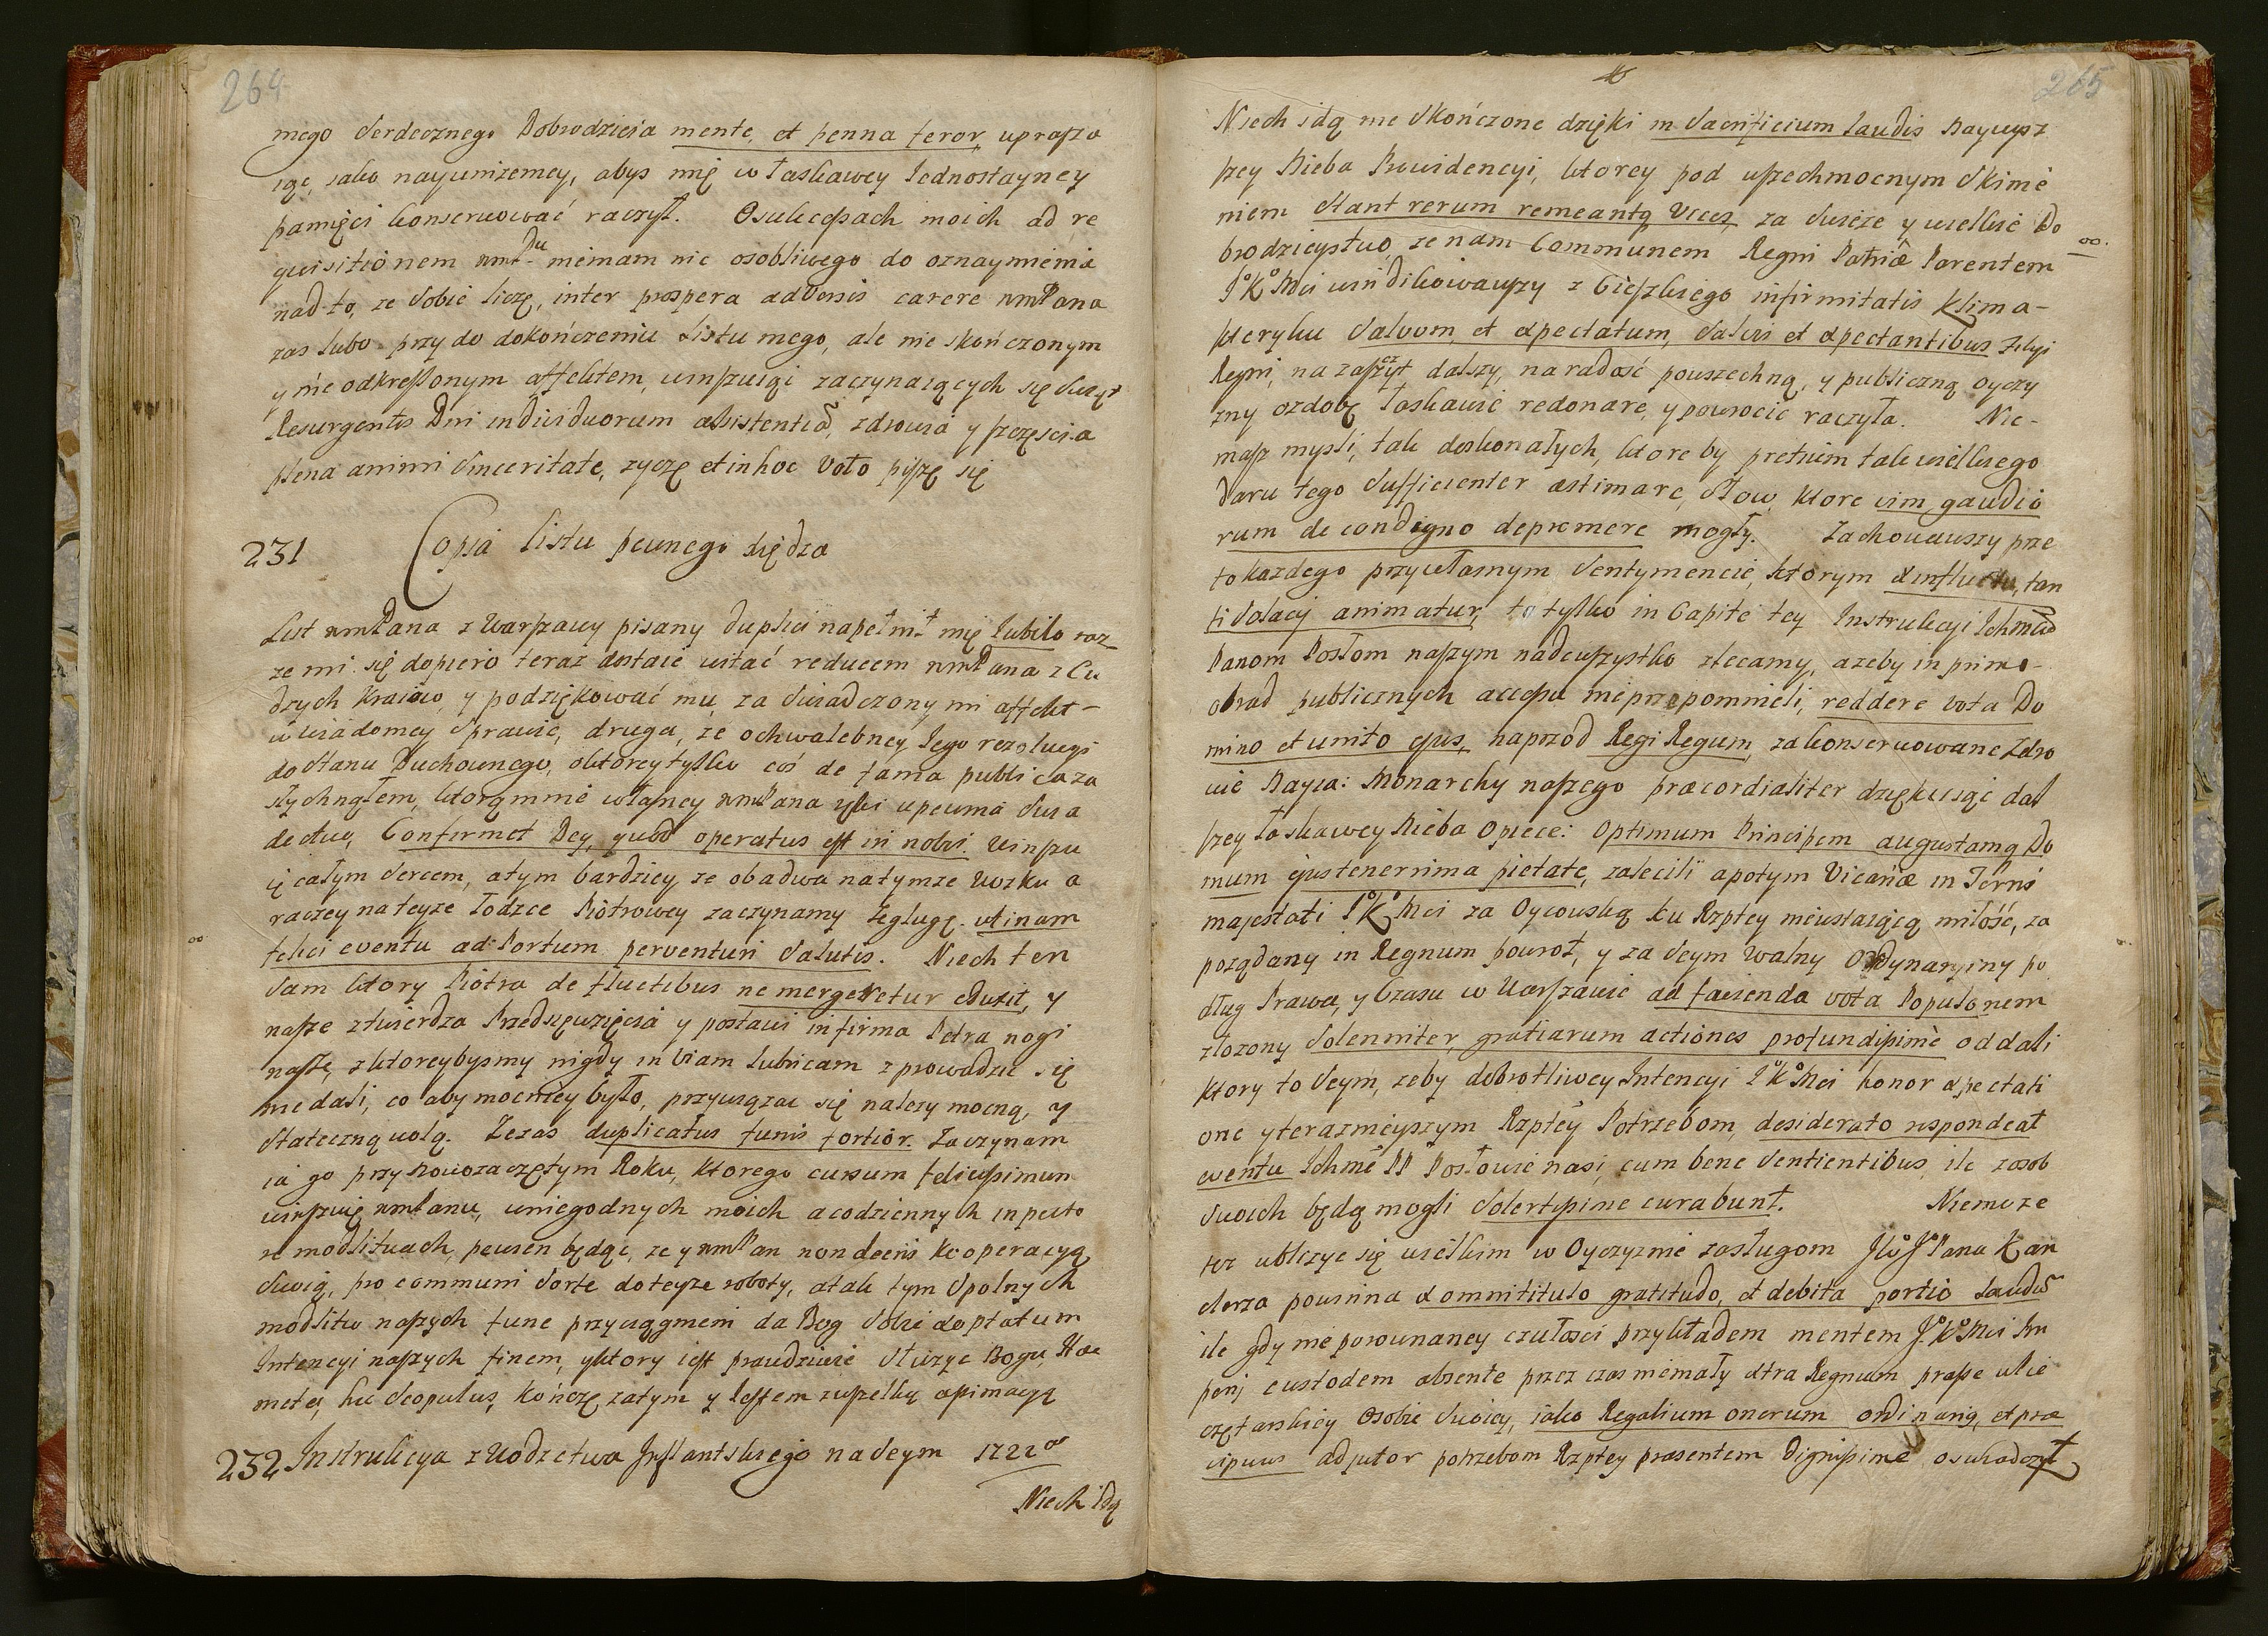 264
mego serdecznego Dobrodzieia mente, et penna feror, uprasza
iąc, iako nayuniżeniey, abyś mię w łaskawey Iednostayney
pamięci konserwować raczył. O sukcessach moich ad re
quisitionem wmć Du niemam nic osobliwego do oznaymienia
nad to, że sobie liczę, inter prospera adversis carere wmPana
zas lubo przy do dokończeniu Listu mego, ale nie skończonym
y nie odkreslonym affektem, winszuiąc zaczynaiących się Swiąt
Resurgentis Dni individuorum assistentiâ, zdrowia y szczęscia
plena animi sinceritate, zyczę et in hoc voto piszę się
231 Copia listu pewnego xiędza
List wmPana z Warszawy pisany duplici napełnił mię Iubilo raz
ze mi się dopiero teraz dostaie witać reducem wmPana z Cu
dzych Kraiow, y podziękować mu za swiadczony mi affekt
w wiadomey sprawie, druga, ze o chwalebney Iego rezolucyi
do stanu Duchownego, o ktorey tylko coś de fama publica za
słychnąłem, ktorą mnie własney wmPana ręki upewnia swia
dectwo, Confirmet Deq, quod operatus est in nobis. Winszu
ię całym sercem, a tym bardziey, ze obadwa na tymze Wozku a
raczey na teyze Łodzce Piotrowey zaczynamy Zeglugę. utinam
felici eventu ad Portum perventuri Salutis. Niech ten
Sam ktory Piotra de fluctibus ne mergeretur eduxit, y
nasze ztwierdza Przedsięwzięcia y postawi in firma Petra nogi
nasze, z ktoreybysmy nigdy in viam lubricam zprowadzic się
nie dali, co aby mocniey było, przywiązac się nalezy mocną, y
Stateczną wolą. Ze zas duplicatus funis fortior. Zaczynam
ia go przy nowozaczętym Roku, ktorego cursum felicissimum
winszuię wmPanu, w niegodnych moich a codziennych in pecto
re modlitwach, pewien będąc, ze y wmPan non deeris kooperacyą
Swoią, pro communi sorte do teyze roboty, a tak tym Spolnych
modlitw naszych fune przyciągniem da Bog Sobie ad optatum
Intencyi naszych finem, y ktory iest prawdziwie słuzyc Bogu, Hæc
meta, hic scopulus, kończę zatym y Iestem zupełką assimacyą
232 Instrukcya z Wodztwa Inflantskiego na Seym 1722 oo
Niech idą
265
Niech idą nie skończone dzięki in Sacrificium laudis naywysz
szey Nieba Prwidencyi, ktorey pod wszechmocnym Skinie
niem Stant rerum remeantq vices, za swieze y wielkie Do
brodzieystwo, ze nam Communem Regni Patriæ Parentem
I°K°Mci windikowawszy z Cięszkiego infirmitatis Klima-
kteryku Salvum, et expectatum, Salvis et expectantibus Filiji
Regni, na zaszczyt dalszy, na radość powszechną, y publiczną oyczy
zny ozdobę łaskawie redonare, y powrocic raczyła. Nie-
masz mysli, tak doskonałych, ktore by pretium tak wielkiego
Daru tego sufficienter æstimare, słow, ktore vim gaudio
rum de condigno depromere mogły. Zachowawszy prze
to kazdego przy własnym Sentymencie, ktorym ex influxu, tan
ti solacij animatur, to tylko in Capite tey Instrukcyi Ichmciow
Panom Posłom naszym nadewszystko zlecamy, azeby in primo-
obrad publicznych accessu nie przepomnieli, reddere vota Do
mino et unito ejus, naprzod Regi Regum, za konserwowane Zdro
wie Nayia: Monarchy naszego præcordialiter dziękuiąc dal
szey łaskawey Nieba Opiece: Optimum Principem augustamq Do
mum ejus tenerrima pietate, zalecili a potym Vicariæ in Terris
majestati I°K°Mci za Oycowską ku Rzptey nieustaiącą miłość, za
poządany in Regnum powrot, y za Seym walny Ordynaryiny po
dług Prawa, y Czasu w Warszawie ad facienda vota Populo nem
złozony Solenniter, gratiarum actiones profundissimè oddali
ktory to Seym, zeby dobrotliwey Intencyi I°K°Mci honor expectati
one y teraznieyszym Rzptey Potrzebom, desiderato respondeat
eventu Ichmć PP Posłowie nasi, cum bene sentientibus, ile zosob
swoich będą mogli Solertissime curabunt. Niemoze
tez ubliżyc się wielkim w Oyczyznie zasługom J°W°J°Pana Kan
clerza powinna ex omni titulo gratitudo, et debita portio laudis
ile gdy nieporownaney czułosci przykładem mentem J°K°Mci Im
perij custodem absente przez czas niemały extra Regnum, prasse ulie
czętarskiey Osobie swoiey, iako Regalium onerum ordinariq, et præ
cipuus adjutor potrzebom Rzptey præsentem Dignissime oswiadczył